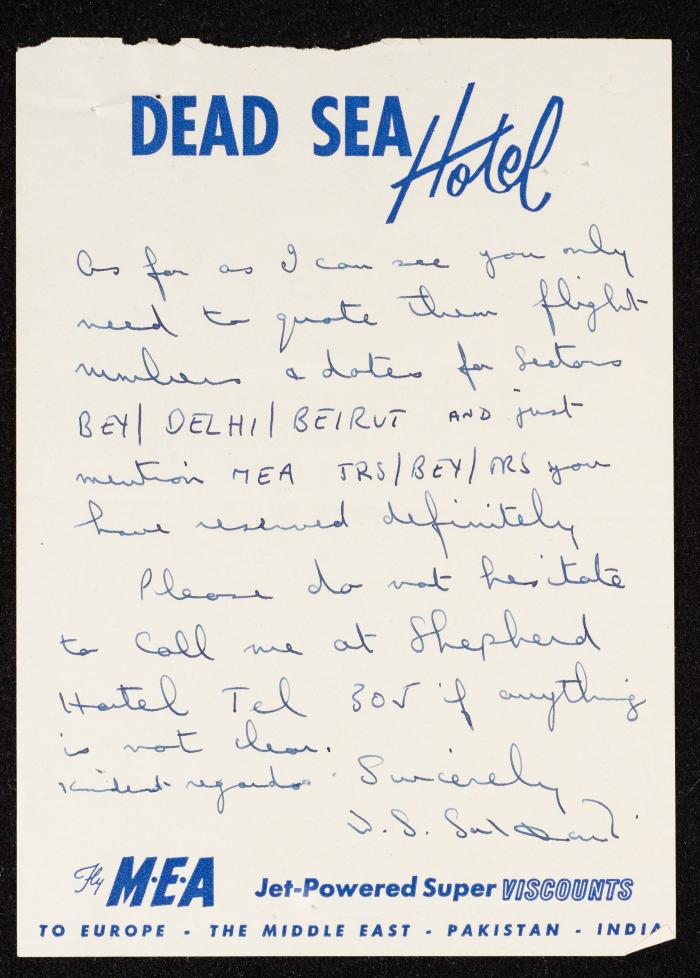 DEAD SEA Hotel
As far as I can see you only
need to quote them flight
numbers & dates for Sectors
BEY/ DELHI/ BEIRUT AND just
mention MEA JRS/BEY/JRS you
have reserved definitely
Please do not hesitate
to Call me at Shepherd
Hotel Tel 305 if anything
is not clear.
Kindest regards Sincerely
Fly M·E·A Jet-Powered Super VISCOUNTS
TO EUROPE - THE MIDDLE EAST - PAKISTAN - INDIA